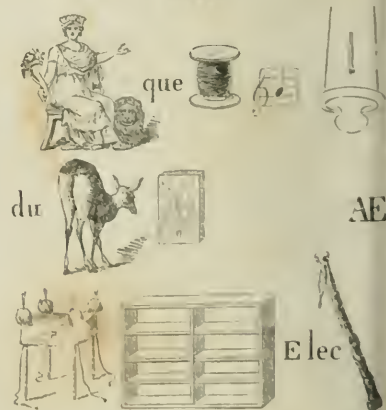 que
du AE
E lec